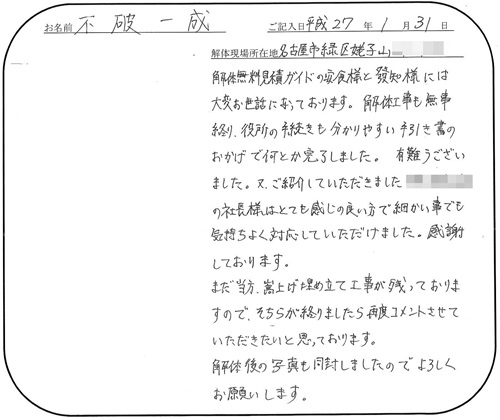 お名前 不破一成 ご記入日 平成27年1月31日
解体現場所在地 名古屋市緑区姥子山
解体無料見積ガイドの安食様と發知様には
大変お世話になっております。解体工事も無事
終り、役所の手続きも分かりやすい手引き書の
おかげで何とか完了しました。有難うござい
ました。又、ご紹介していただきました
の社長様はとても感じの良い方で細かい事でも
気持ちよく対応していただけました。感謝
しております。
まだ当方、嵩上げ埋め立て工事が残っておりま
すので、そちらが終りましたら再度コメントさせて
いただきたいと思っております。
解体後の写真も同封しましたのでよろしく
お願いします。